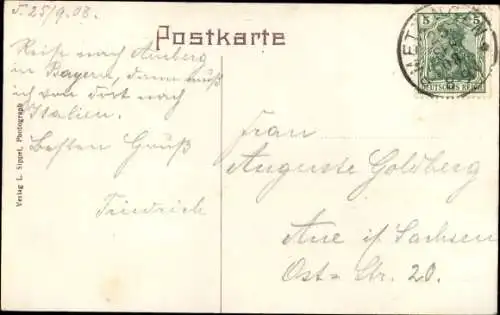 T. 25/9.08.
Postkarte
5 5
DEUTSCHES REICH
Reise nach Amberg
in Bayern, dann muß
ich von dort nach
Italien.
Besten Gruß
Friedrich
Verlag L. Sippel, Photograph
Frau
Auguste Goldberg
Aue i/ Sachsen
Ost-Str. 20.